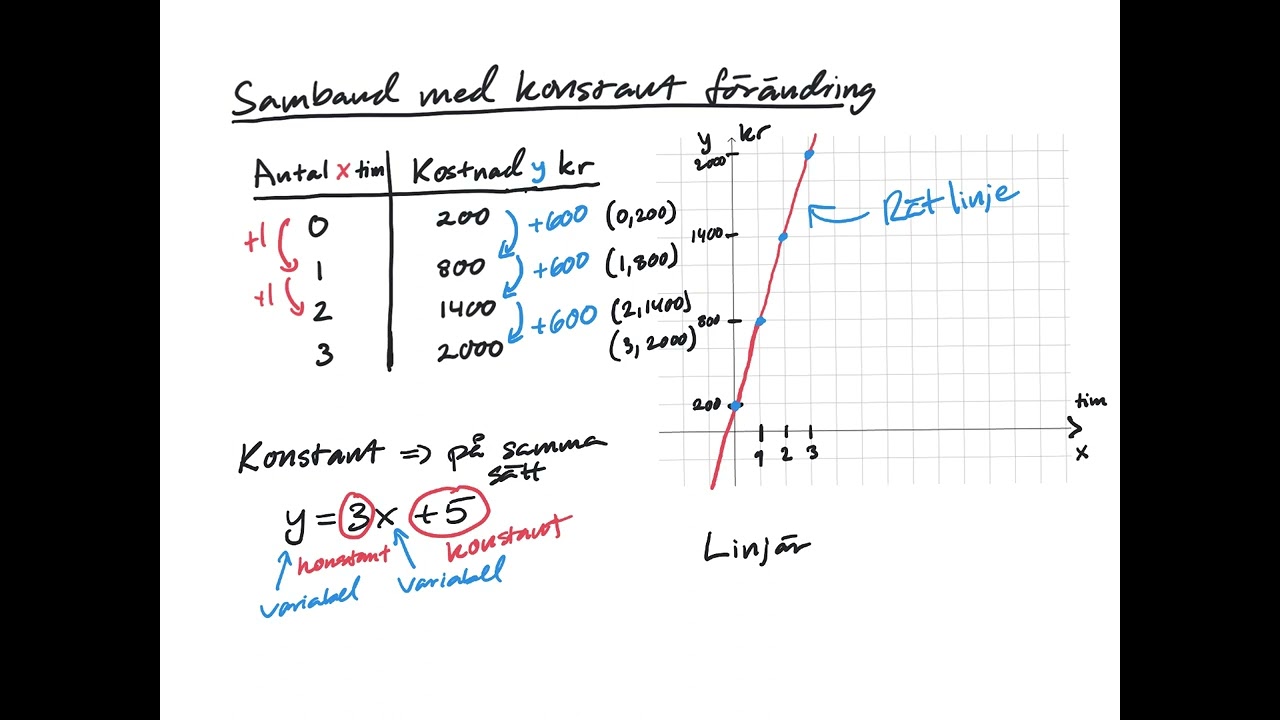 Samband med konstant förändring
Antal x tim Kostnad y kr
0 200 +600 (0,200)
+1
1 800 +600 (1,800)
+1
2 1400 +600 (2,1400)
3 2000 (3,2000)
y kr
2000
1400
800
200
1 2 3
tim
x
Rät linje
Konstant => på samma
sätt
y = 3x + 5
konstant konstant
variabel variabel
Linjär